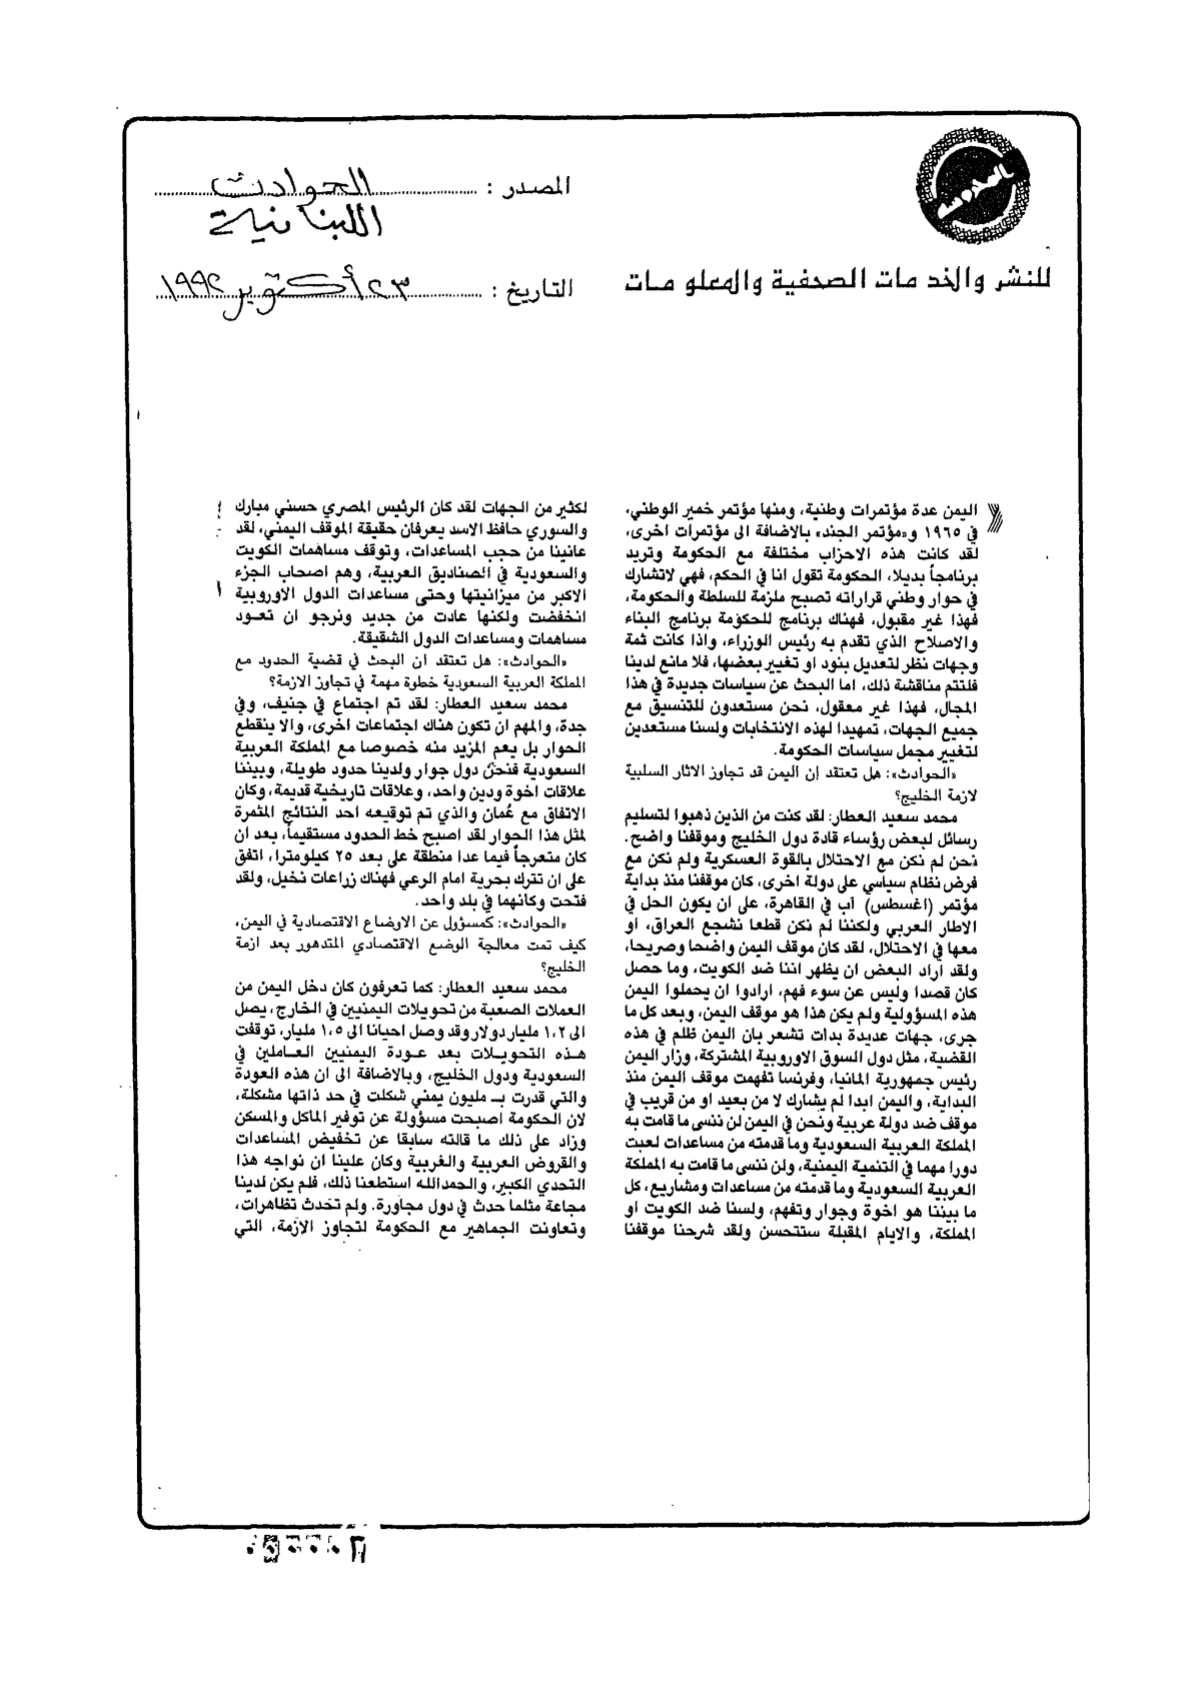 المصدر : الحوادث
اللبنانية
للنشر والخدمات الصحفية والمعلومات
التاريخ : ٢٣ أكتوبر ١٩٩٢
اليمن عدة مؤتمرات وطنية، ومنها مؤتمر خمير الوطني،
في ١٩٦٥ و«مؤتمر الجند» بالاضافة الى مؤتمرات اخرى،
لقد كانت هذه الاحزاب مختلفة مع الحكومة وتريد
برنامجاً بديلا، الحكومة تقول انا في الحكم، فهي لاتشارك
في حوار وطني قراراته تصبح ملزمة للسلطة والحكومة،
فهذا غير مقبول، فهناك برنامج للحكومة برنامج البناء
والاصلاح الذي تقدم به رئيس الوزراء، واذا كانت ثمة
وجهات نظر لتعديل بنود او تغيير بعضها، فلا مانع لدينا
فلتتم مناقشة ذلك، اما البحث عن سياسات جديدة في هذا
المجال، فهذا غير معقول، نحن مستعدون للتنسيق مع
جميع الجهات، تمهيدا لهذه الانتخابات ولسنا مستعدين
لتغيير مجمل سياسات الحكومة.
«الحوادث»: هل تعتقد إن اليمن قد تجاوز الاثار السلبية
لازمة الخليج؟
محمد سعيد العطار: لقد كنت من الذين ذهبوا لتسليم
رسائل لبعض رؤساء قادة دول الخليج وموقفنا واضح.
نحن لم نكن مع الاحتلال بالقوة العسكرية ولم نكن مع
فرض نظام سياسي على دولة اخرى، كان موقفنا منذ بداية
مؤتمر (اغسطس) آب في القاهرة، على ان يكون الحل في
الاطار العربي ولكننا لم نكن قطعا نشجع العراق، او
معها في الاحتلال، لقد كان موقف اليمن واضحا وصريحا،
ولقد اراد البعض ان يظهر اننا ضد الكويت، وما حصل
كان قصدا وليس عن سوء فهم، ارادوا ان يحملوا اليمن
هذه المسؤولية ولم يكن هذا هو موقف اليمن، وبعد كل ما
جرى، جهات عديدة بدات تشعر بان اليمن ظلم في هذه
القضية، مثل دول السوق الاوروبية المشتركة، وزار اليمن
رئيس جمهورية المانيا، وفرنسا تفهمت موقف اليمن منذ
البداية، واليمن ابدا لم يشارك لا من بعيد او من قريب في
موقف ضد دولة عربية ونحن في اليمن لن ننسى ما قامت به
المملكة العربية السعودية وما قدمته من مساعدات لعبت
دورا مهما في التنمية اليمنية، ولن ننسى ما قامت به المملكة
العربية السعودية وما قدمته من مساعدات ومشاريع، كل
ما بيننا هو اخوة وجوار وتفهم، ولسنا ضد الكويت او
المملكة، والايام المقبلة ستتحسن ولقد شرحنا موقفنا
لكثير من الجهات لقد كان الرئيس المصري حسني مبارك
والسوري حافظ الاسد يعرفان حقيقة الموقف اليمني، لقد
عانينا من حجب المساعدات، وتوقف مساهمات الكويت
والسعودية في الصناديق العربية، وهم اصحاب الجزء
الاكبر من ميزانيتها وحتى مساعدات الدول الاوروبية
انخفضت ولكنها عادت من جديد ونرجو ان تعود
مساهمات ومساعدات الدول الشقيقة.
«الحوادث»: هل تعتقد ان البحث في قضية الحدود مع
المملكة العربية السعودية خطوة مهمة في تجاوز الازمة؟
محمد سعيد العطار: لقد تم اجتماع في جنيف، وفي
جدة، والمهم ان تكون هناك اجتماعات اخرى، والا ينقطع
الحوار بل يعم المزيد منه خصوصا مع المملكة العربية
السعودية فنحن دول جوار ولدينا حدود طويلة، وبيننا
علاقات اخوة ودين واحد، وعلاقات تاريخية قديمة، وكان
الاتفاق مع عُمان والذي تم توقيعه احد النتائج المثمرة
لمثل هذا الحوار لقد اصبح خط الحدود مستقيماً، بعد ان
كان متعرجاً فيما عدا منطقة على بعد ٢٥ كيلومترا، اتفق
على ان تترك بحرية امام الرعي فهناك زراعات نخيل، ولقد
فتحت وكأنهما في بلد واحد.
«الحوادث»: كمسؤول عن الاوضاع الاقتصادية في اليمن،
كيف تمت معالجة الوضع الاقتصادي المتدهور بعد ازمة
الخليج؟
محمد سعيد العطار: كما تعرفون كان دخل اليمن من
العملات الصعبة من تحويلات اليمنيين في الخارج، يصل
الى ١،٢ مليار دولار وقد وصل احيانا الى ١،٥ مليار، توقفت
هذه التحويلات بعد عودة اليمنيين العاملين في
السعودية ودول الخليج، وبالاضافة الى ان هذه العودة
والتي قدرت بـ مليون يمني شكلت في حد ذاتها مشكلة،
لان الحكومة اصبحت مسؤولة عن توفير الماكل والمسكن
وزاد على ذلك ما قالته سابقا عن تخفيض المساعدات
والقروض العربية والغربية وكان علينا ان نواجه هذا
التحدي الكبير، والحمدالله استطعنا ذلك، فلم يكن لدينا
مجاعة مثلما حدث في دول مجاورة. ولم تحدث تظاهرات،
وتعاونت الجماهير مع الحكومة لتجاوز الازمة، التي